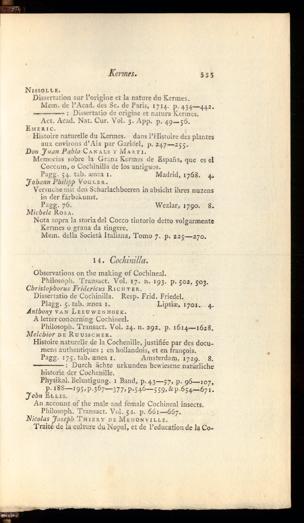 Kermes. 535
NISSOLLE.
Dissertation sur l'origine et la nature du Kermes.
Mem. de l'Acad. des Sc. de Paris, 1714. p. 434—442.
———— : Dissertatio de origine et natura Kermes.
Act. Acad. Nat. Cur. Vol. 3. App. p. 49—56.
EMERIC.
Histoire naturelle du Kermes. dans l'Histoire des plantes
aux environs d'Aix par Garidel, p. 247—255.
Don Juan Pablo CANALS Y MARTI.
Memorias sobre la Grana Kermes de España, que es el
Coccum, o Cochinilla de los antiguos.
Pagg. 54. tab. ænea 1. Madrid, 1768. 4.
Johann Philipp VOGLER.
Versuche mit den Scharlachbeeren in absicht ihres nuzens
in der färbekunst.
Pagg. 76. Wezlar, 1790. 8.
Michele ROSA.
Nota sopra la storia del Cocco tintorio detto volgarmente
Kermes o grana da tingere.
Mem. della Società Italiana, Tomo 7. p. 225—270.
14. Cochinilla.
Observations on the making of Cochineal.
Philosoph. Transact. Vol. 17. n. 193. p. 502, 503.
Christophorus Fridericus RICHTER.
Dissertatio de Cochinilla. Resp. Frid. Friedel.
Plagg. 5. tab. ænea 1. Lipsiæ, 1701. 4.
Anthony VAN LEEUWENHOEK.
A letter concerning Cochineel.
Philosoph. Transact. Vol. 24. n. 292. p. 1614—1628.
Melchior DE RUUSSCHER.
Histoire naturelle de la Cochenille, justifiée par des docu-
mens authentiques; en hollandois, et en françois.
Pagg. 175. tab. ænea 1. Amsterdam, 1729. 8.
———— : Durch ächte urkunden bewiesene natürliche
historie der Cochenille.
Physikal. Belustigung. 1 Band, p. 43—57, p. 96—107,
p. 188—195, p. 367—377, p. 546—559, & p. 654—671.
John ELLIS.
An account of the male and female Cochineal insects.
Philosoph. Transact. Vol. 52. p. 661—667.
Nicolas Joseph THIERY DE MENONVILLE.
Traité de la culture du Nopal, et de l'education de la Co-